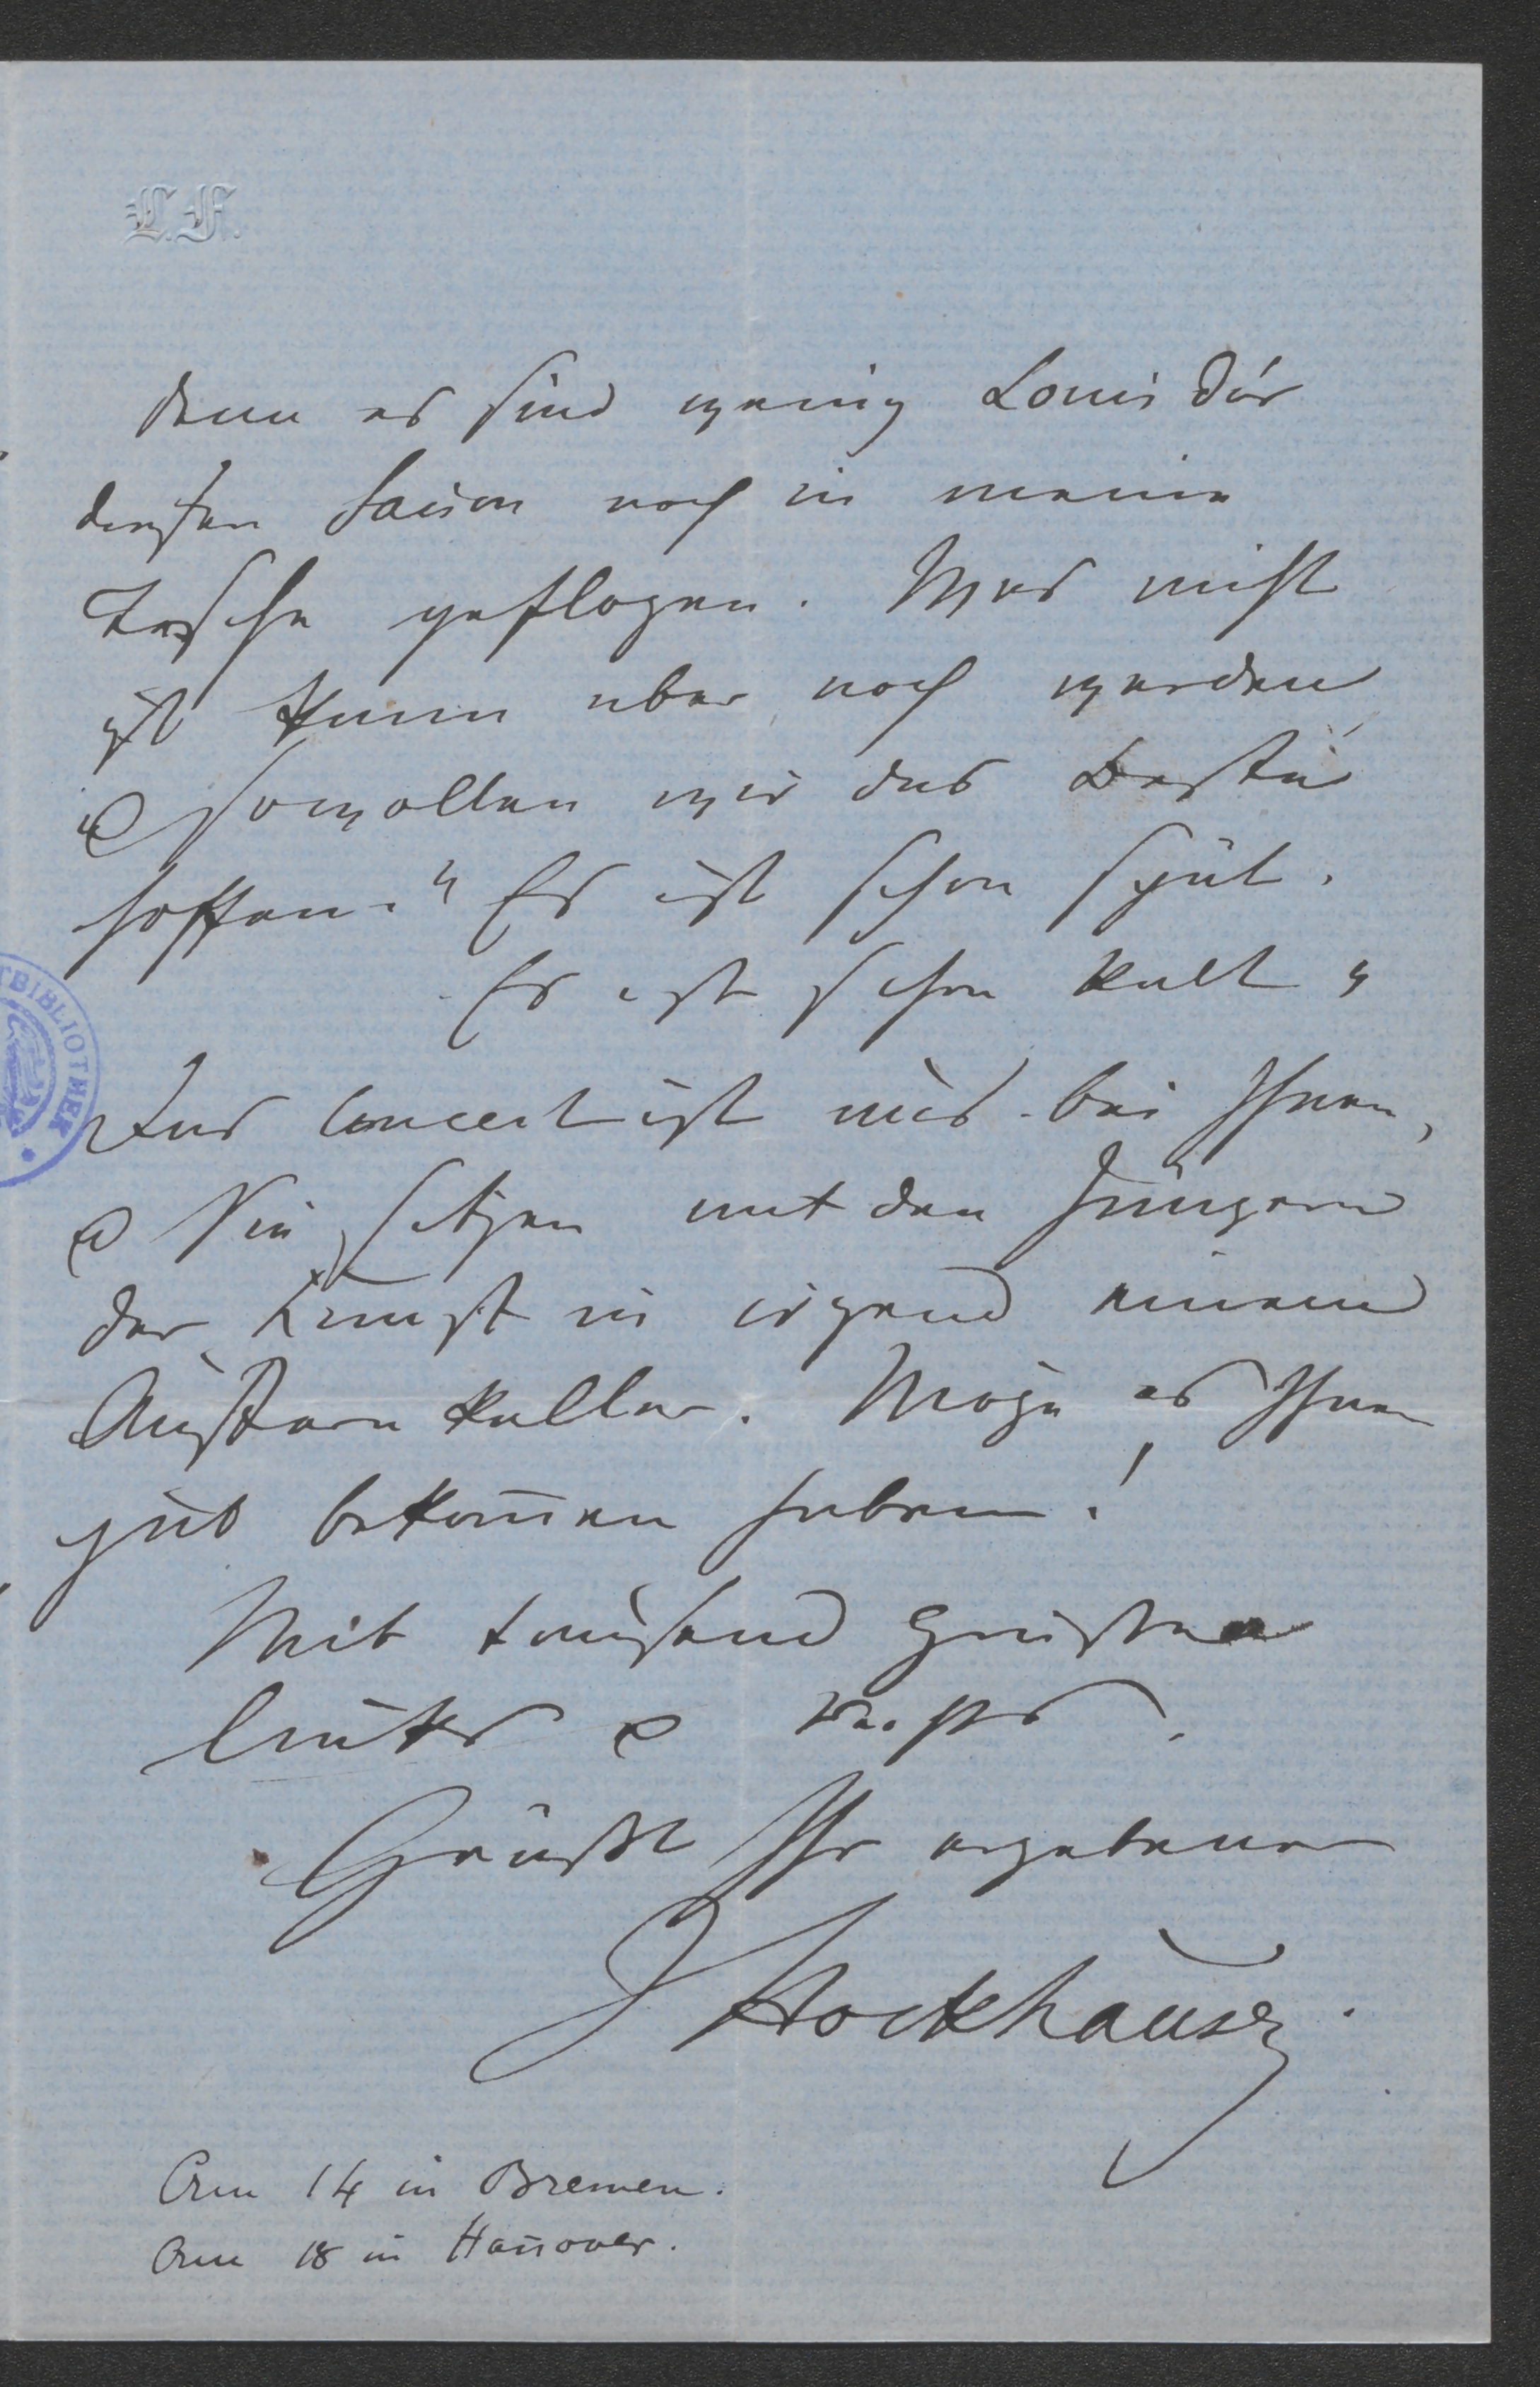 L.F.
denn es sind wenig Louis d'ór
diesen Saison noch in meine
Tasche geflogen. Was nicht
ist kann aber noch werden
u so wollen wir das Beste
hoffen. " Es ist schon spät.
Es ist schon kalt "
Das Concert ist aus bei Ihnen,
u Sie sitzen mit den Jüngern
der Kunst in irgend einem
Austernkeller. Möge es Ihnen
gut bekom̄en haben!
Mit tausend Grüssen
links u rechts.
Grüsst Ihr ergebener
JStockhausen.
Am 14 in Bremen.
Am 18 in Han̄over.
TBIBLIOTHEK